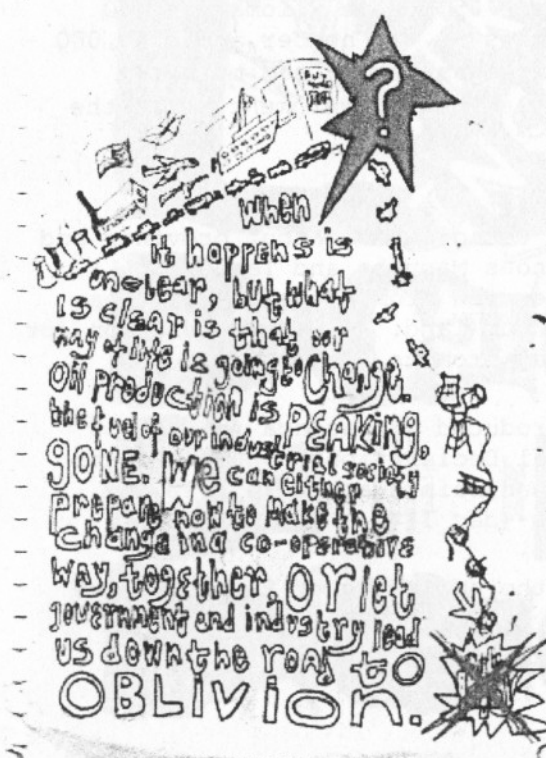 ?
when
it happens is
unclear, but what
is clear is that our
way of life is going to Change.
Oil production is PEAKING,
the fuel of our industrial society
GONE. We can either
prepare now to make the
change in a co-operative
way, together, or let
government and industry lead
us down the road to
OBLIVION.